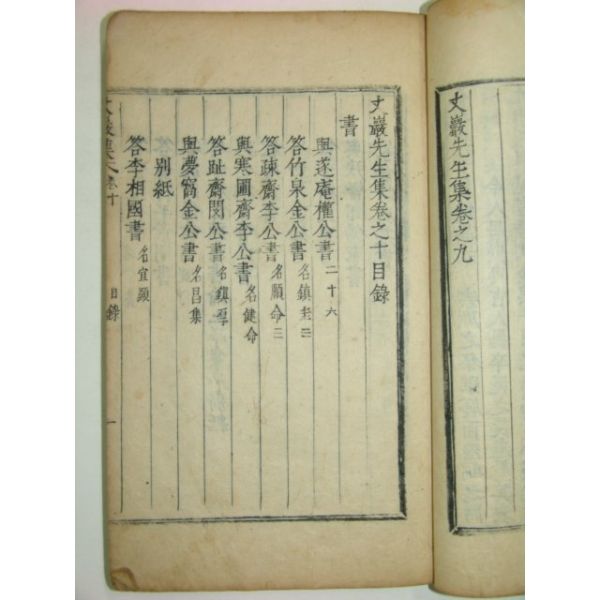 丈巖先生集卷之九
丈巖先生集卷之十目錄
書
與遂庵權公書 二十六
答竹泉金公書 名鎭圭三
答疎齋李公書 名頤命二
與寒圃齋李公書 名健命
答趾齋閔公書 名鎭厚
與夢窩金公書 名昌集
別紙
答李相國書 名宜顯
丈巖集 卷十 目錄 一